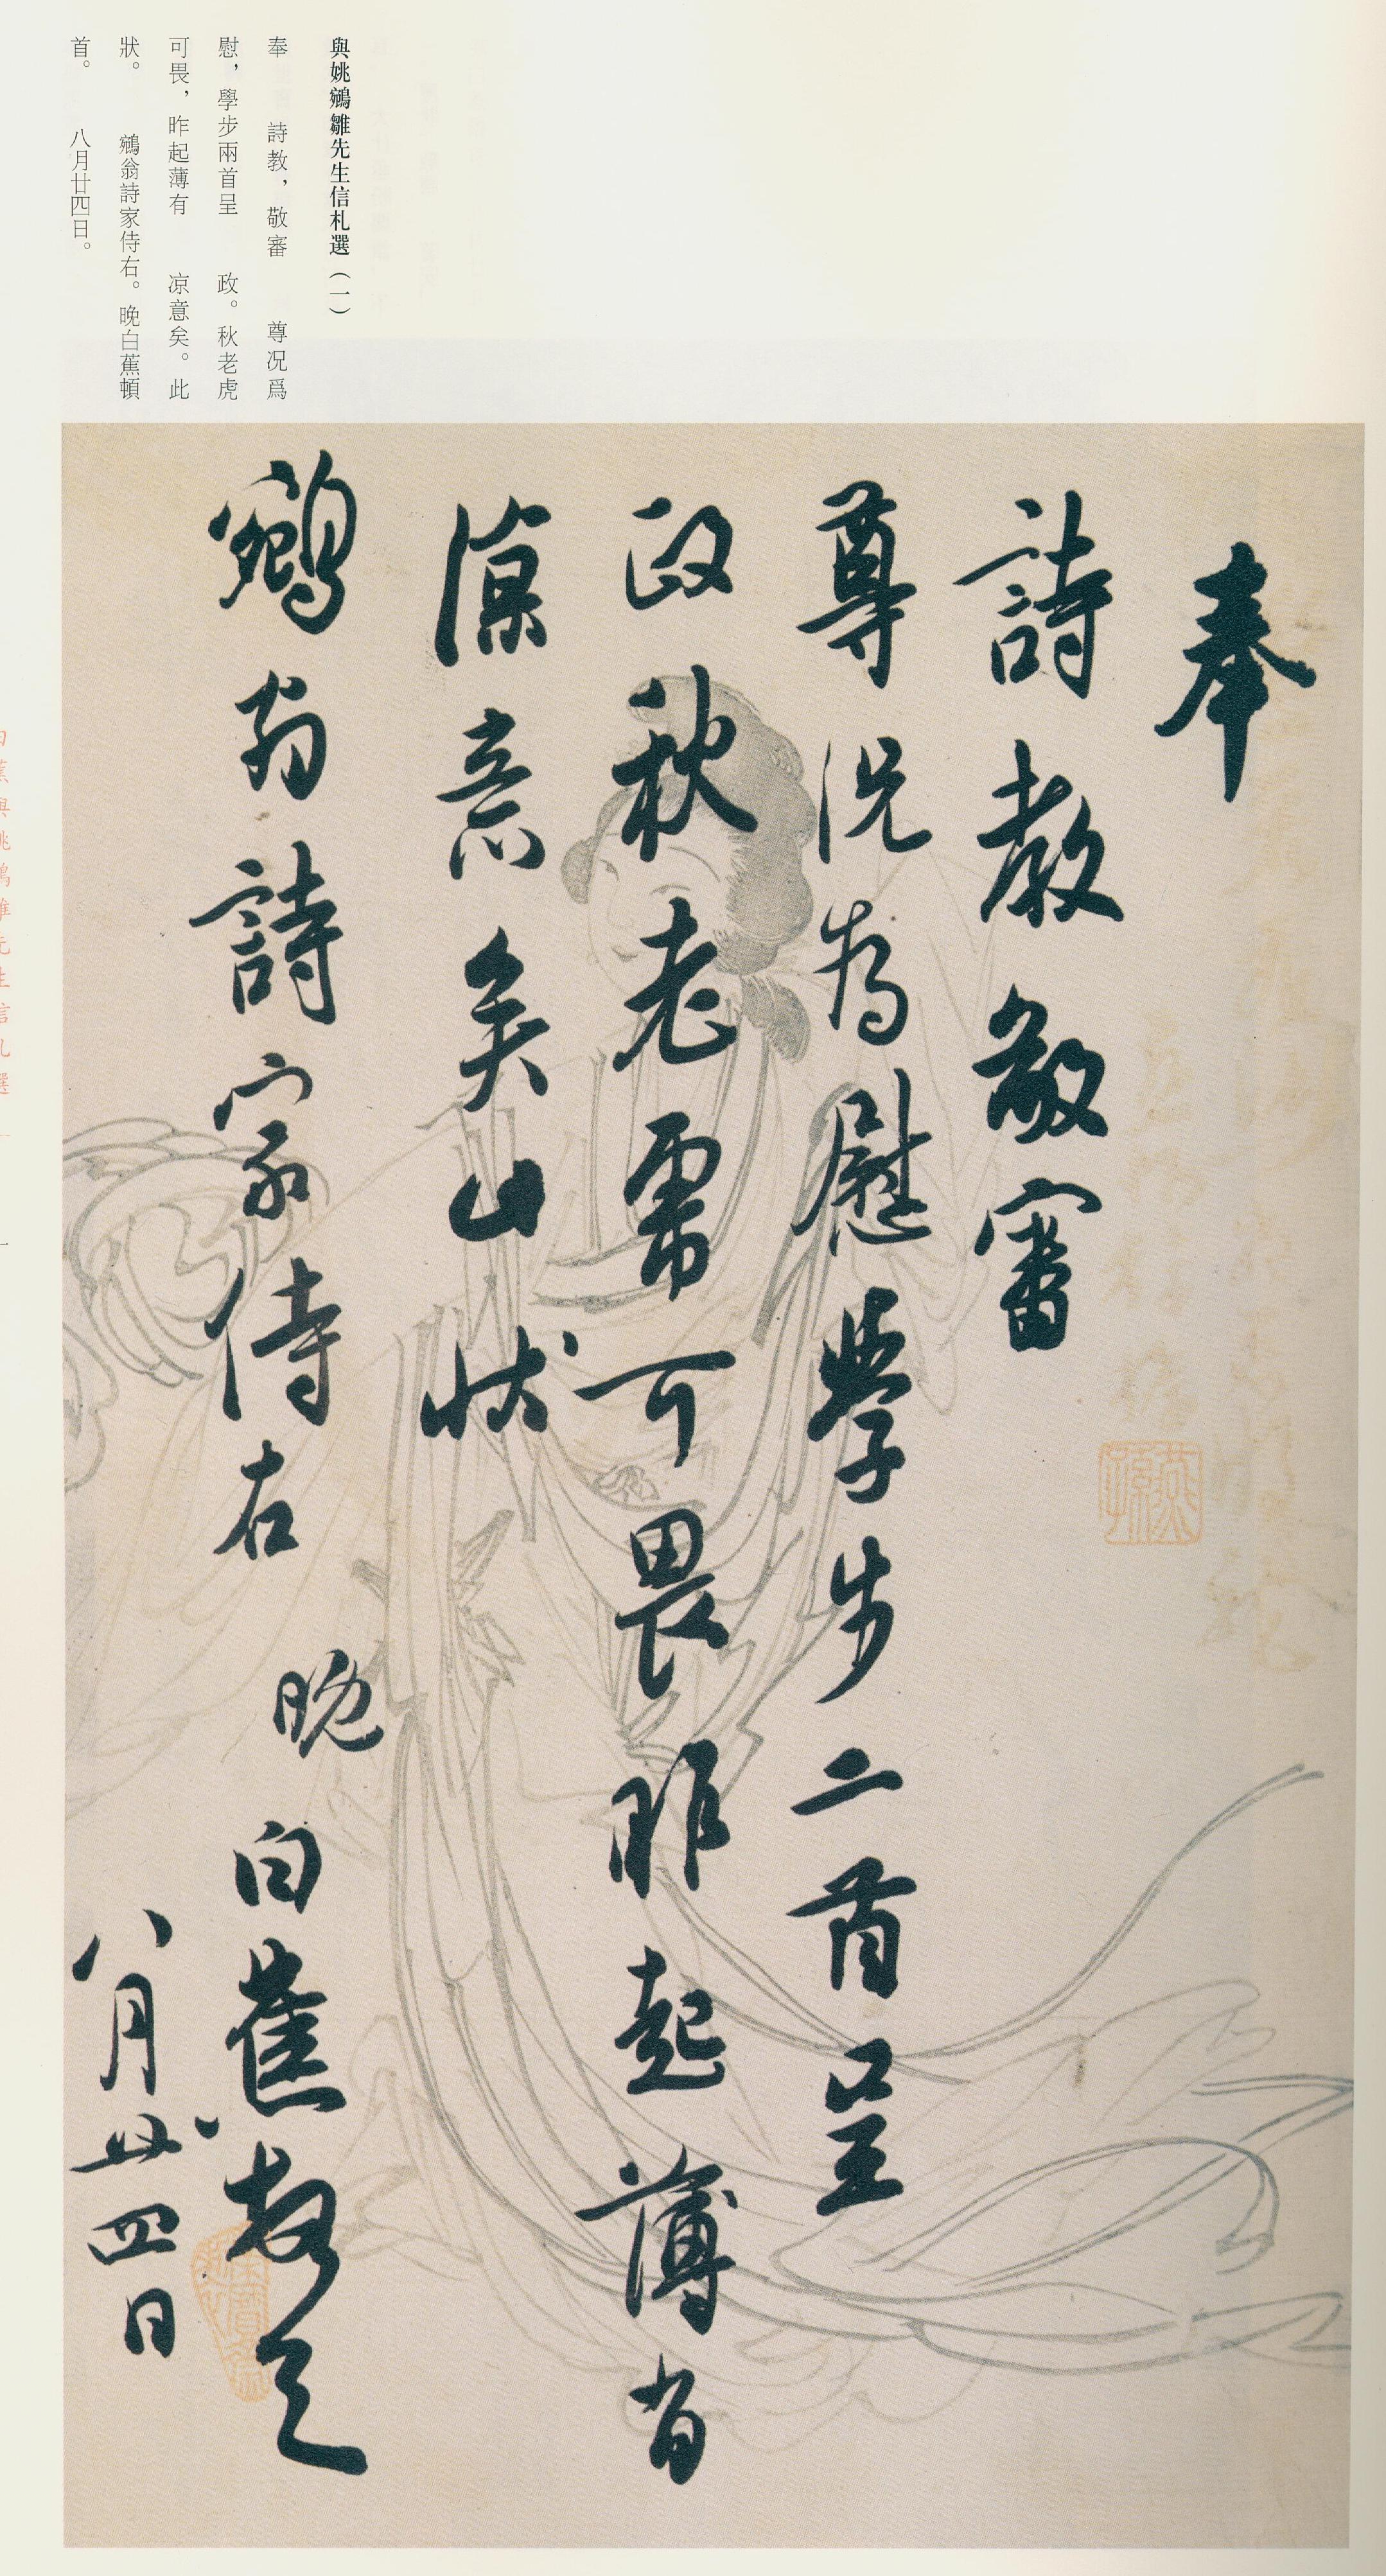 與姚鵷雛先生信札選（一）
奉　詩教，敬審　尊况爲
慰，學步兩首呈　政。秋老虎
可畏，昨起薄有　凉意矣。此
狀。　鵷翁詩家侍右。晚白蕉頓
首。　八月廿四日。
奉
詩教敬審
尊况為慰學步二首呈
政秋老虎可畏昨起薄有
凉意矣此狀
鵷翁詩家侍右　晚白蕉頓首
八月廿四日
白蕉與姚鵷雛先生信札選
一